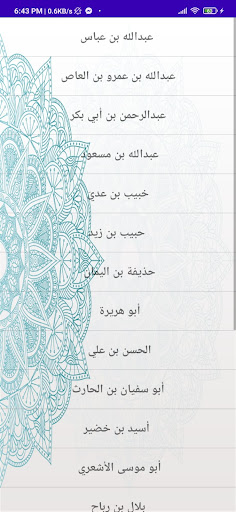 6:43 PM | 0.6KB/s
عبدالله بن عباس
عبدالله بن عمرو بن العاص
عبدالرحمن بن أبي بكر
عبدالله بن مسعود
خبيب بن عدي
حبيب بن زيد
حذيفة بن اليمان
أبو هريرة
الحسن بن علي
أبو سفيان بن الحارث
أسيد بن خضير
أبو موسى الأشعري
بلال بن رباح